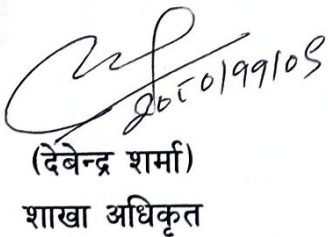 २०८०|११|०५
(देबेन्द्र शर्मा)
शाखा अधिकृत